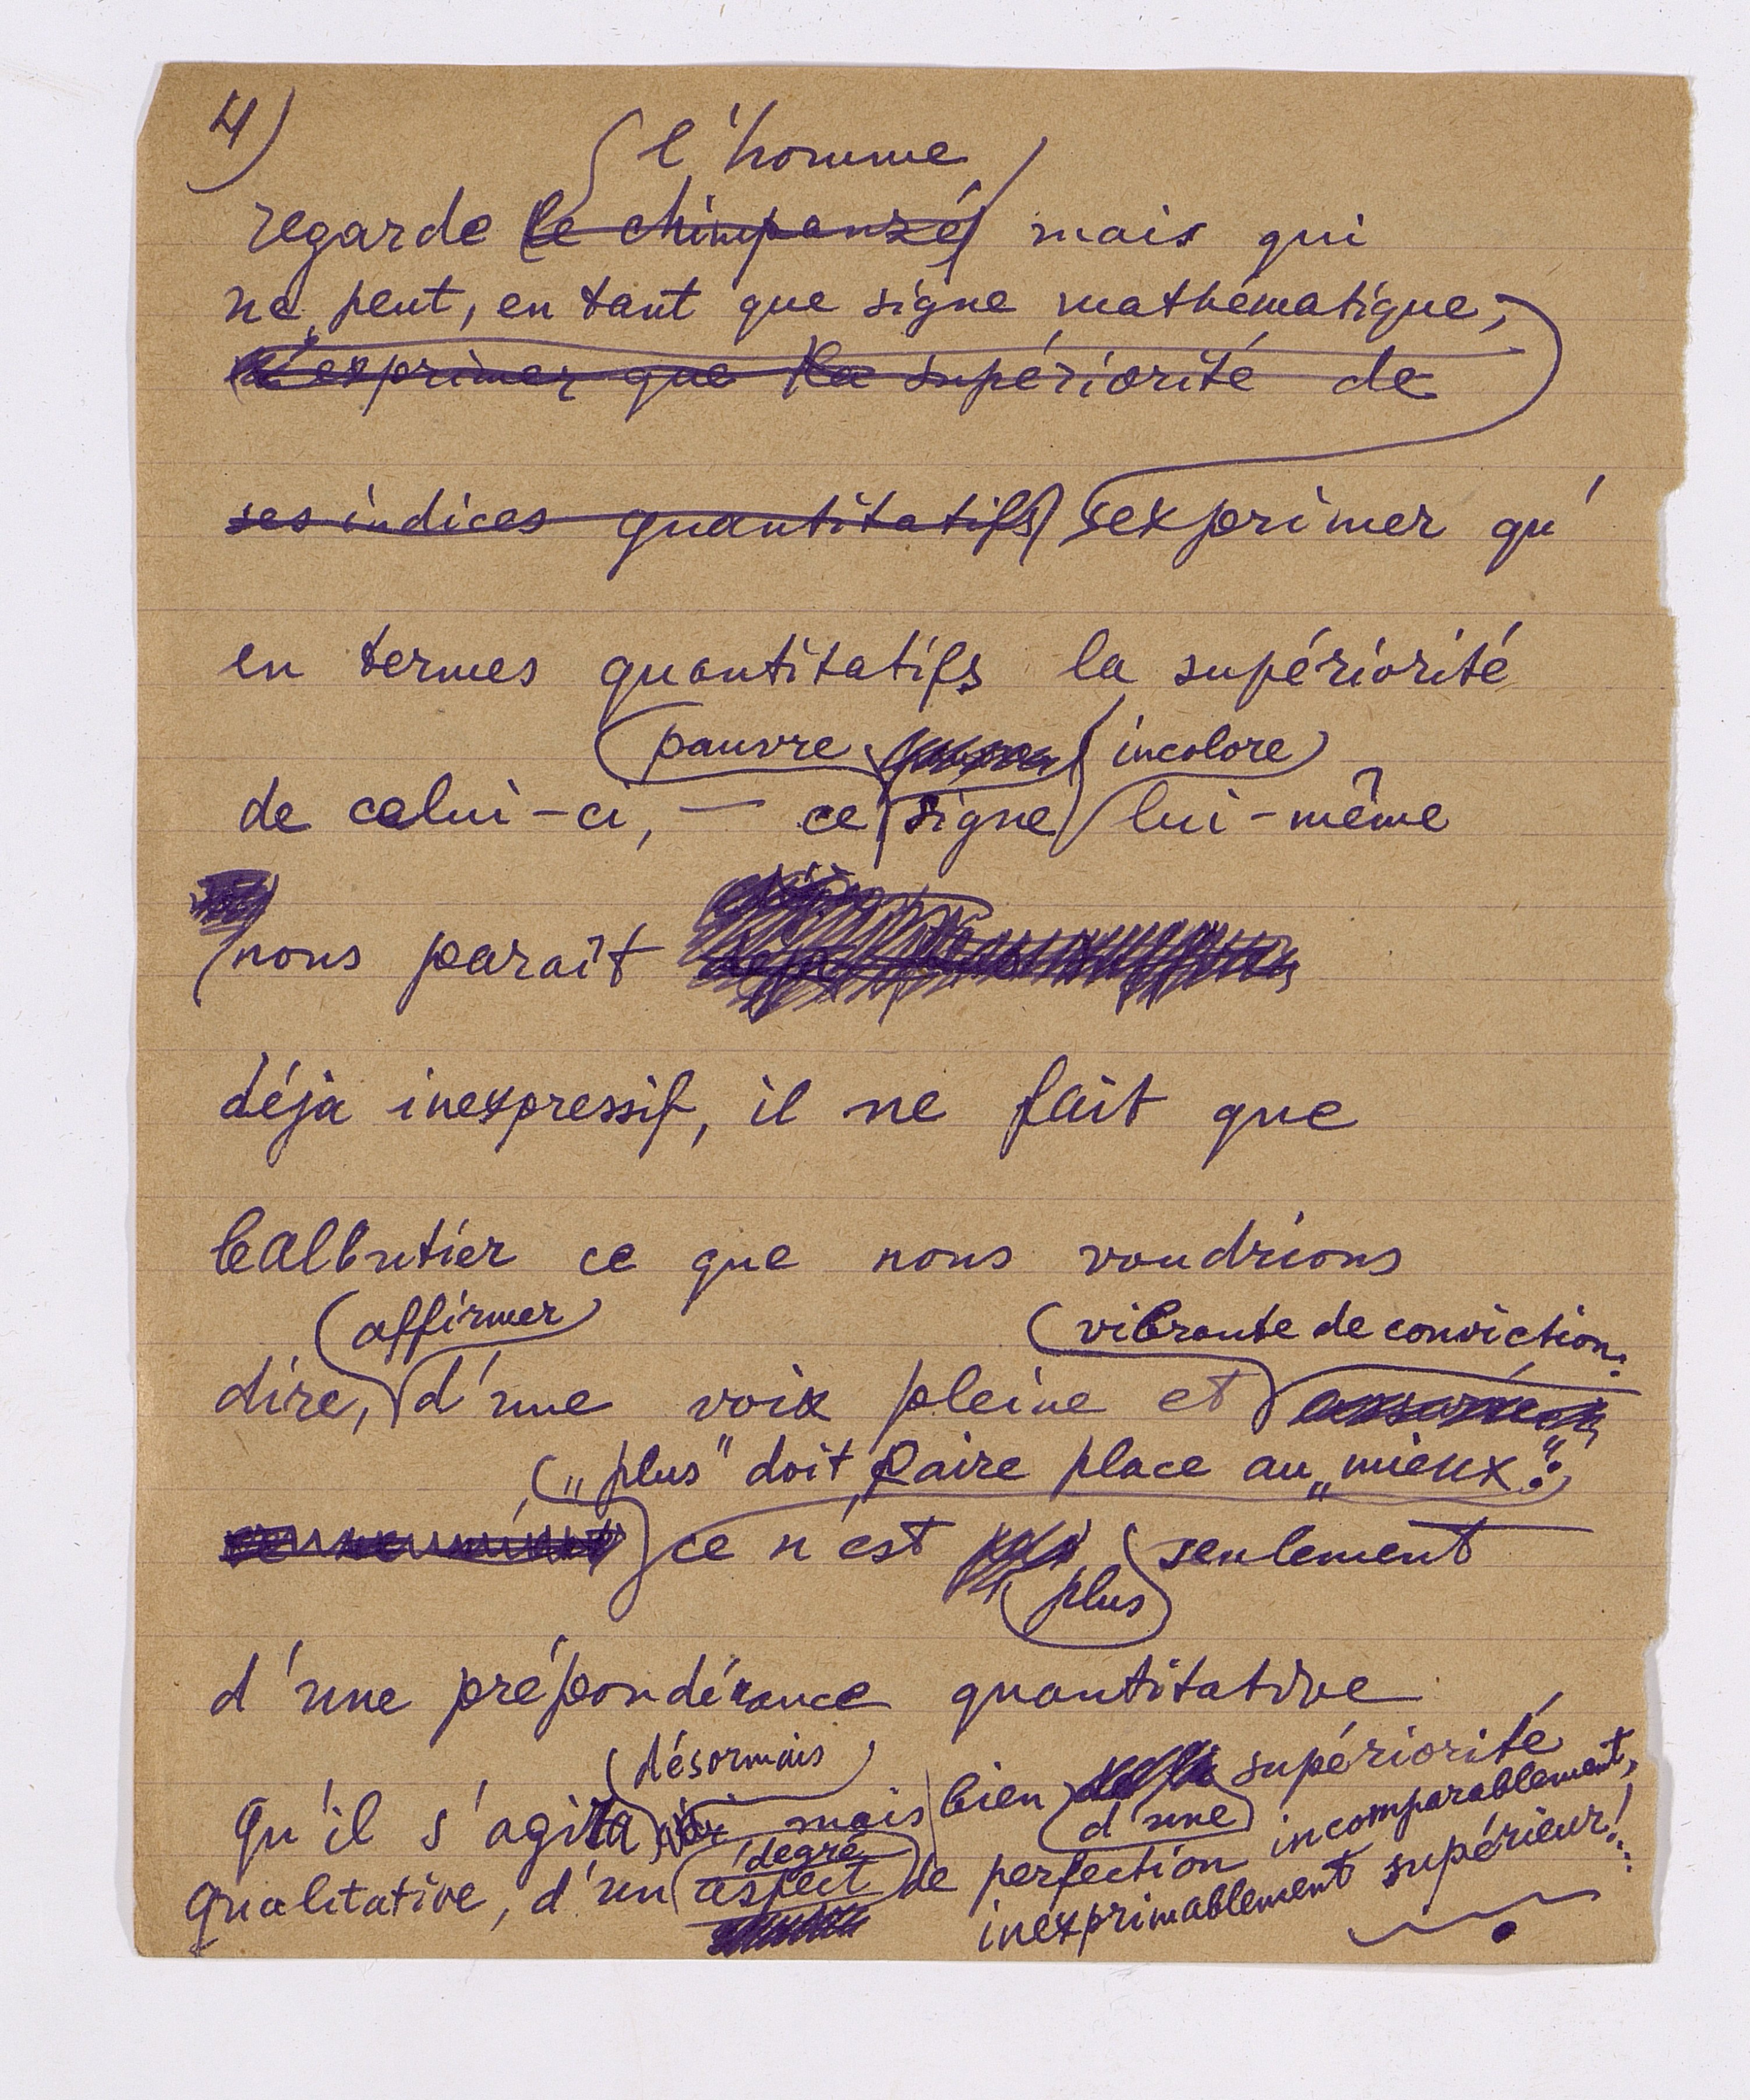 4)
l'homme
regarde le chimpanzé mais qui
ne peut, en tant que signe mathématique,
s'exprimer que la supériorité de
ses indices quantitatifs exprimer qu'
en termes quantitatifs la supériorité
pauvre incolore
de celui-ci, — ce signe lui-même
nous paraît
déja inexpressif, il ne fait que
balbutier ce que nous voudrions
affirmer vibrante de conviction:
dire, d'une voix pleine et
„plus" doit faire place au „mieux":
ce n'est seulement
plus
d'une prépondérance quantitative
désormais
qu'il s'agira ici mais bien supériorité
d'une
degré
qualitative, d'un aspect de perfection incomparablement,
inexprimablement supérieur!...